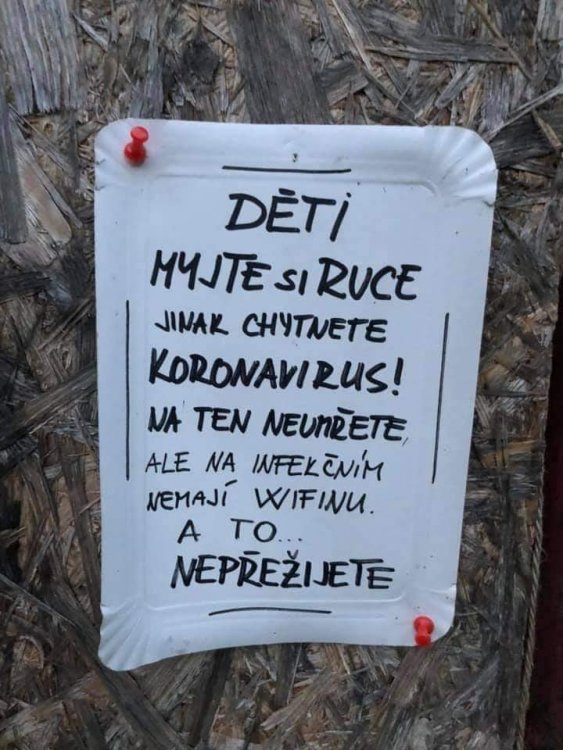 DĚTI
MYJTE SI RUCE
JINAK CHYTNETE
KORONAVIRUS!
NA TEN NEUMŘETE,
ALE NA INFEKČNÍM
NEMAJÍ WIFINU.
A TO...
NEPŘEŽIJETE